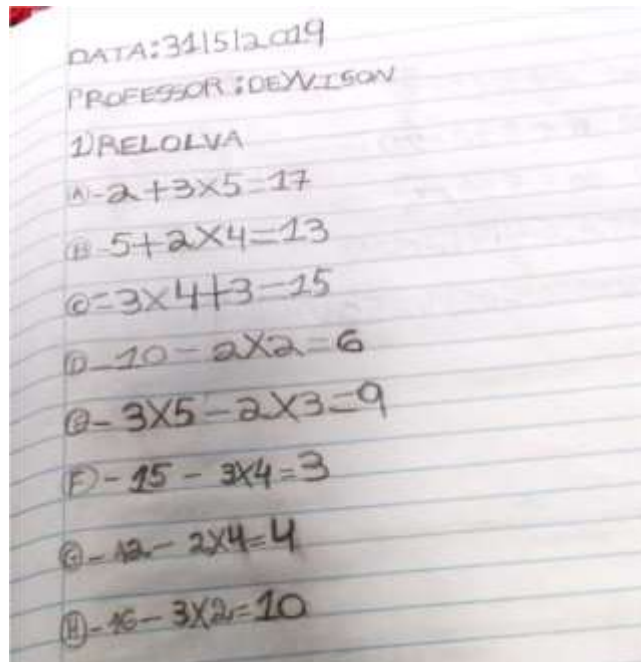 DATA:31|5|2019
PROFESSOR:DEYVISON
1)RELOLVA
A-2+3X5=17
B-5+2X4=13
C=3X4+3=15
D-10-2X2=6
E-3X5-2X3=9
F)-15-3X4=3
G-12-2X4=4
H)-16-3X2=10